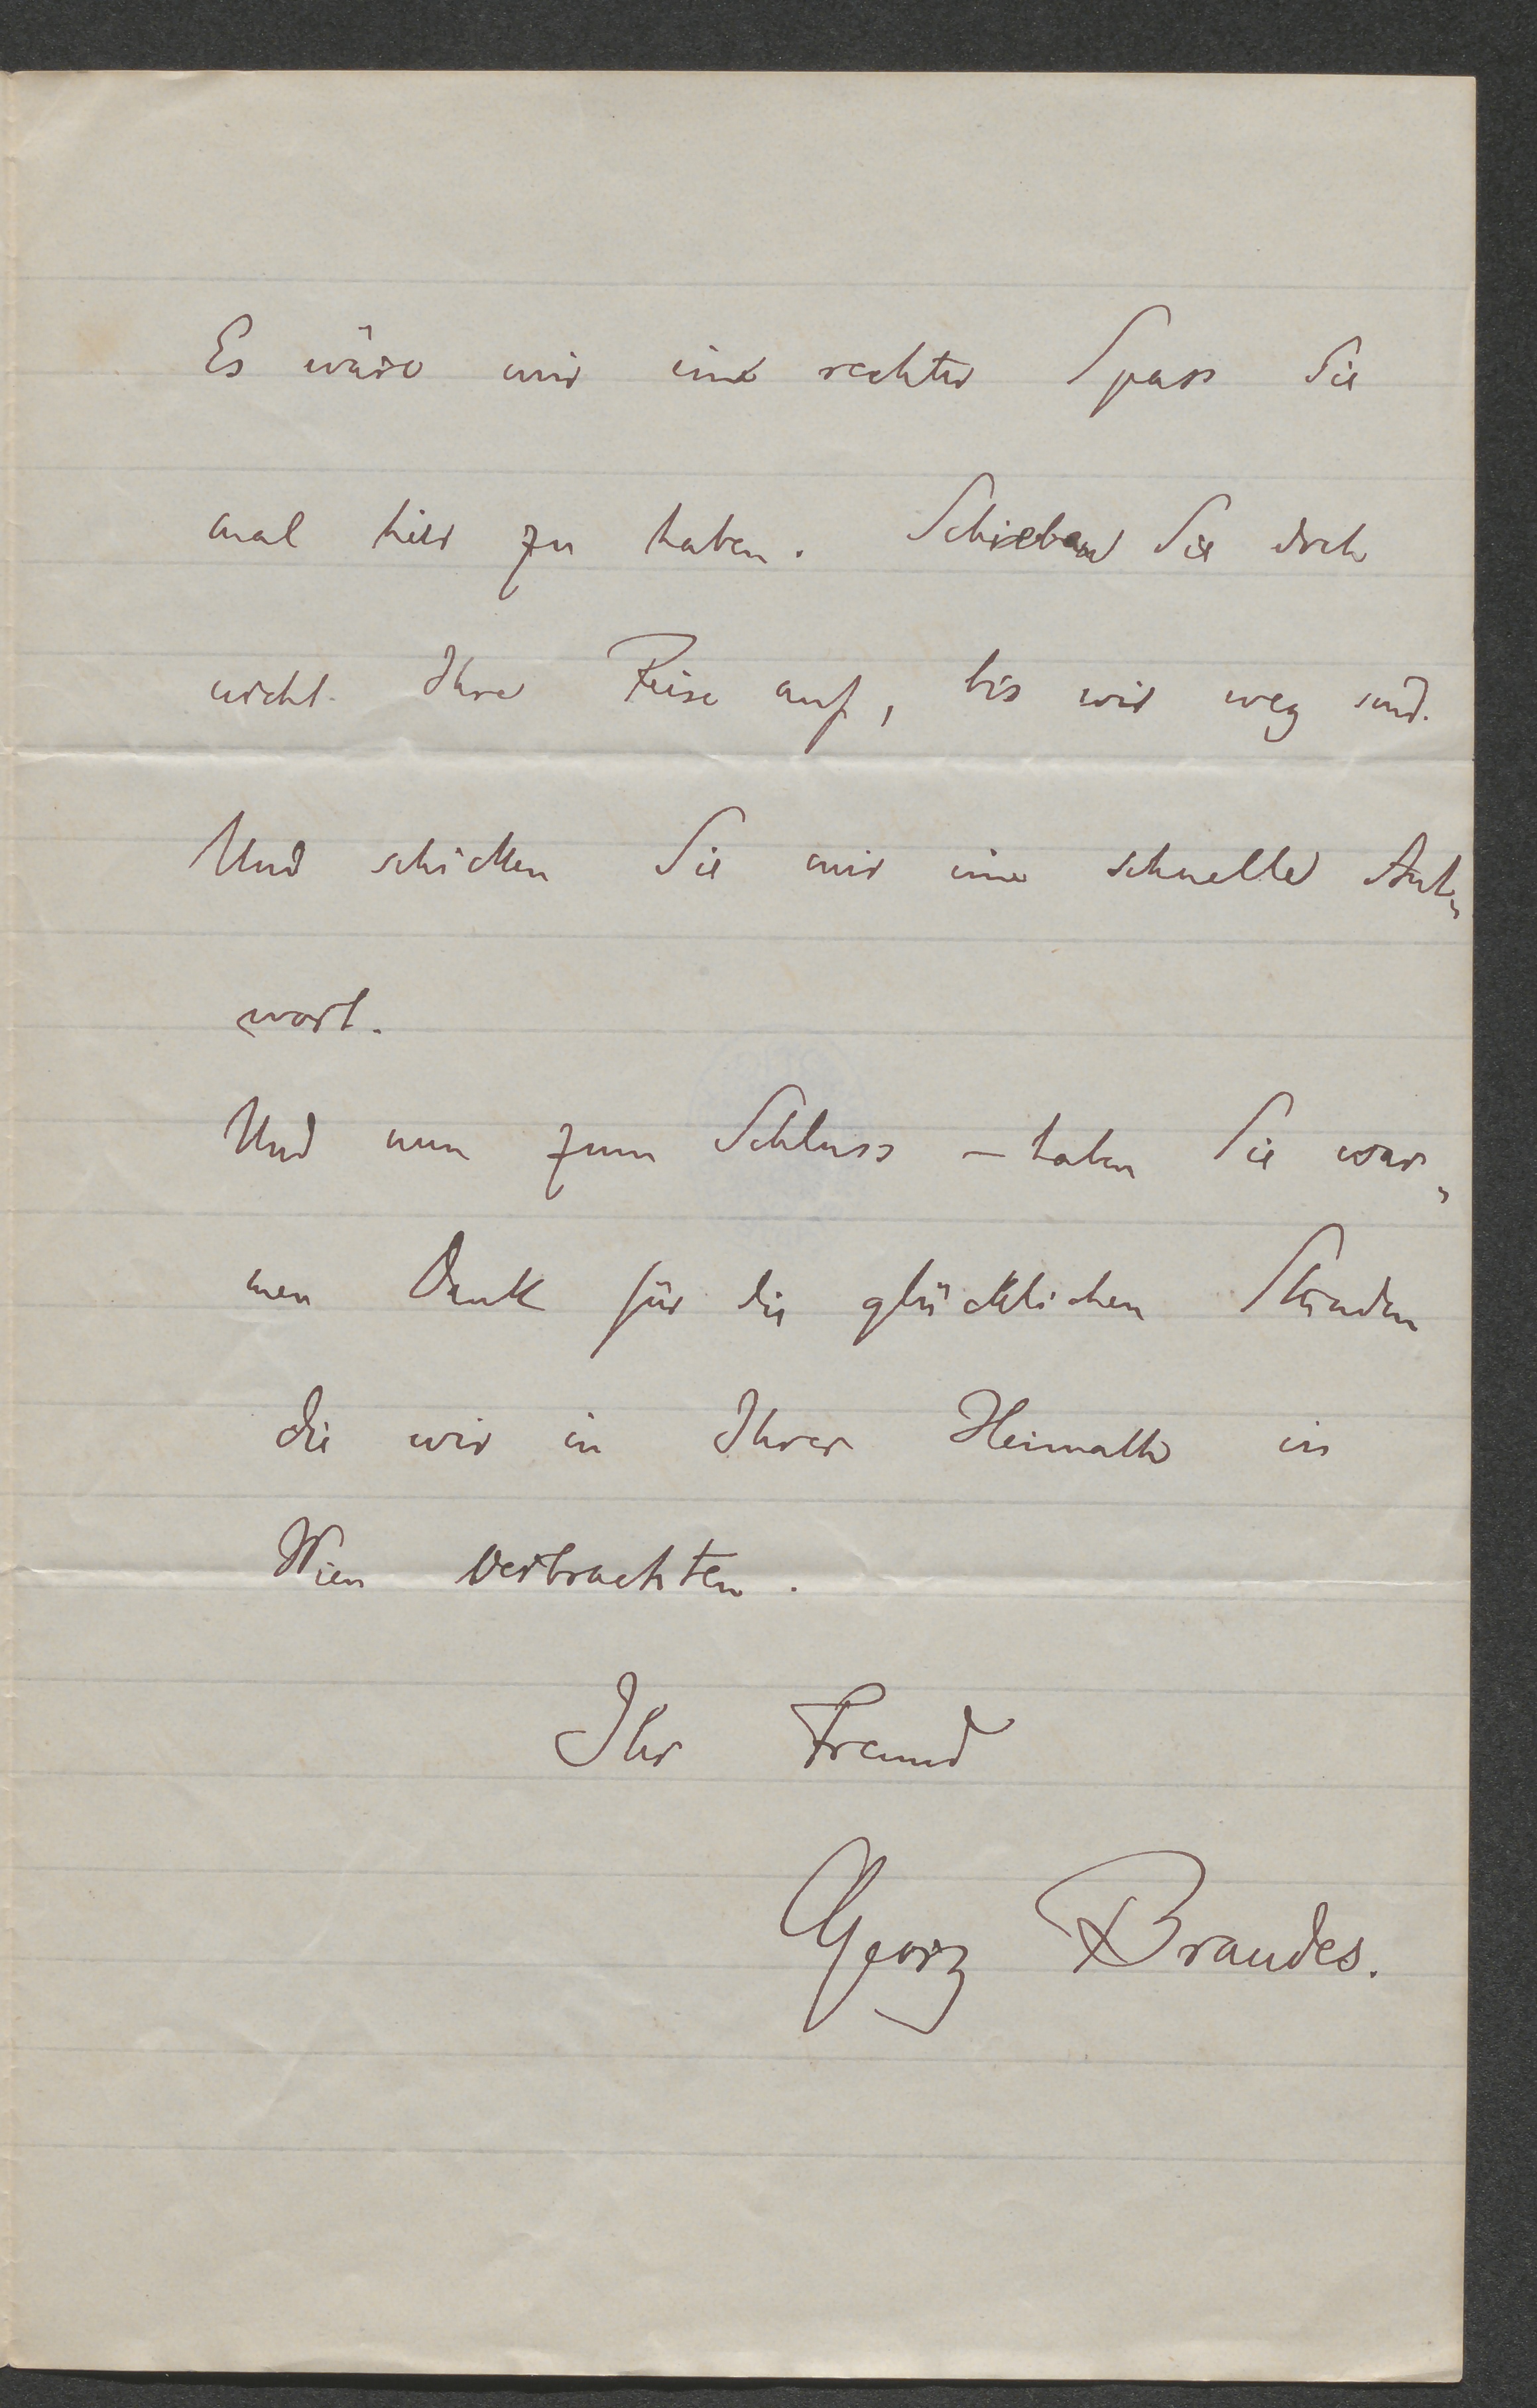 Es wäre mir ein rechter Spass Sie
mal hier zu haben. Schieben Sie doch
nicht Ihre Reise auf, bis wir weg sind.
Und schicken Sie mir eine schnelle Ant-
wort.
Und nun zum Schluss – haben Sie war-
men Dank für die glücklichen Stunden
die wir in Ihrer Heimath in
Wien verbrachten.
Ihr Freund
Georg Brandes.